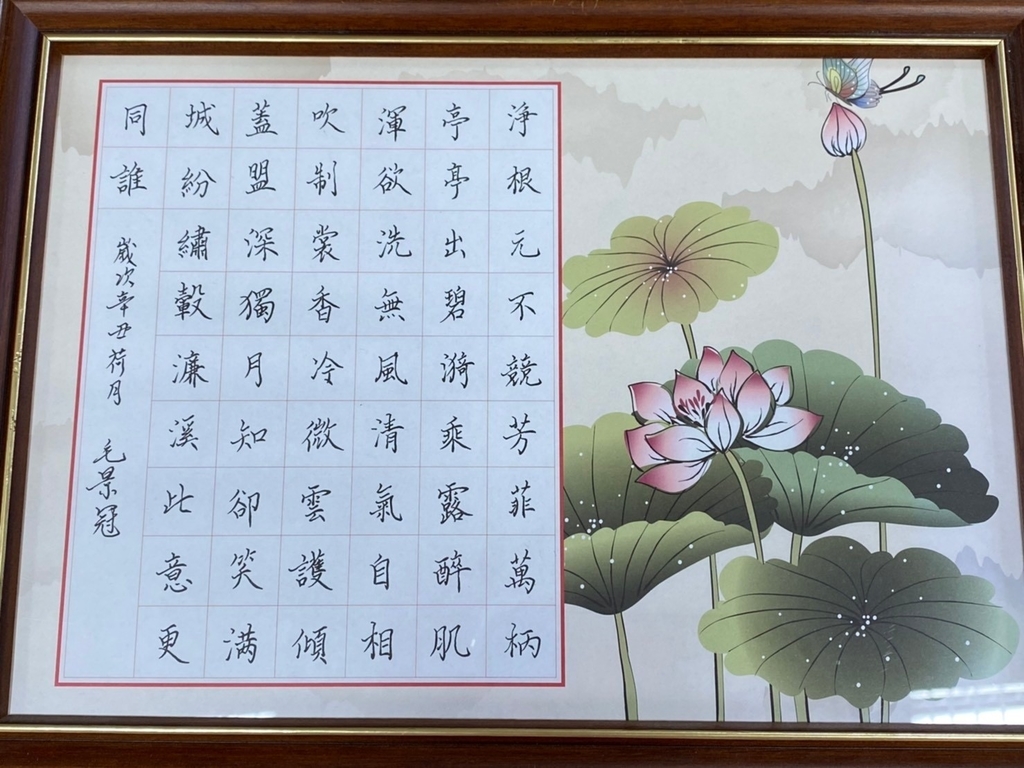 淨根元不競芳菲萬柄
亭亭出碧漪乘露醉肌
渾欲洗無風清氣自相
吹制裳香冷微雲護傾
蓋盟深獨月知卻笑满
城紛繡轂濂溪此意更
同誰
歲次辛丑荷月 毛景冠